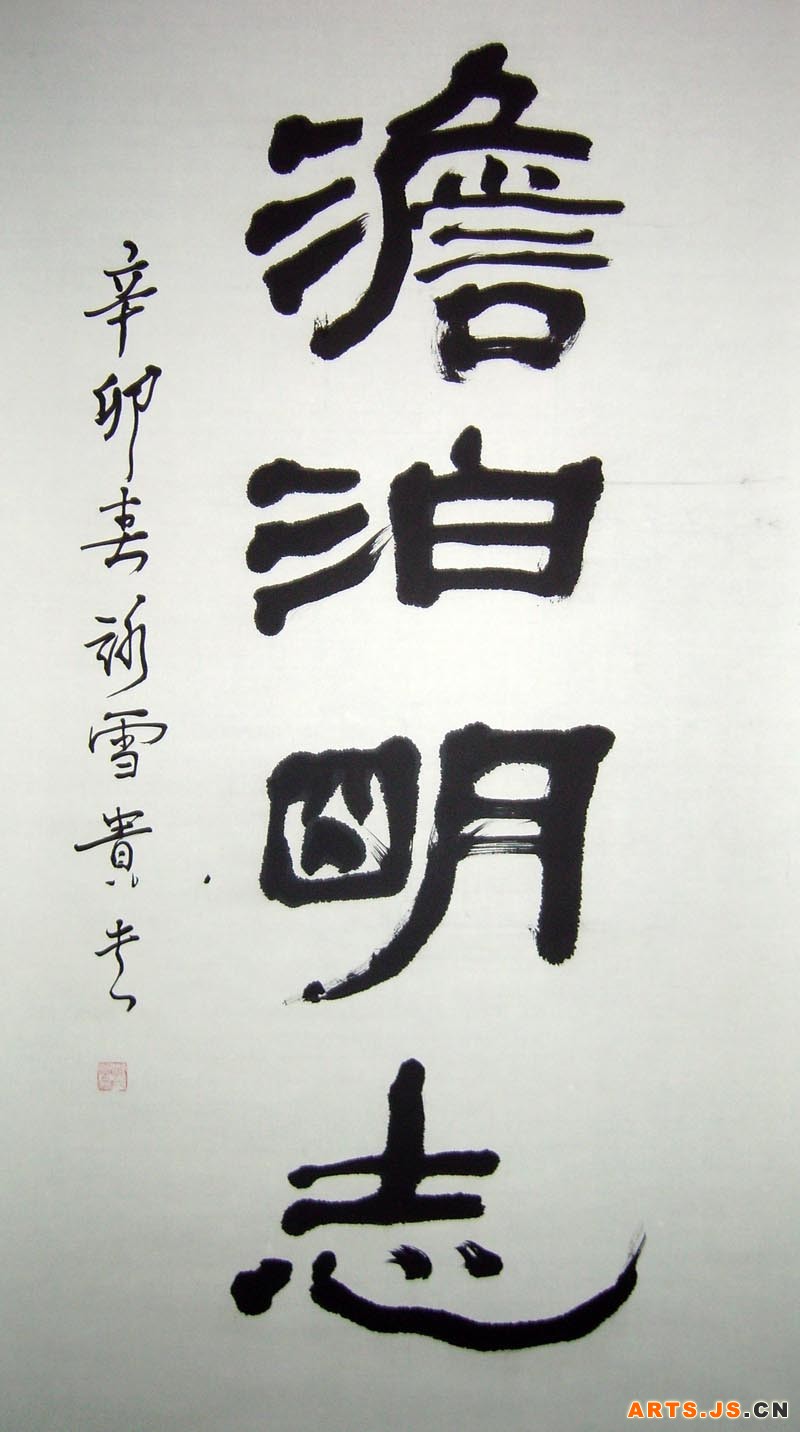 澹泊明志
辛卯春詠雪貴書
ARTS.JS.CN